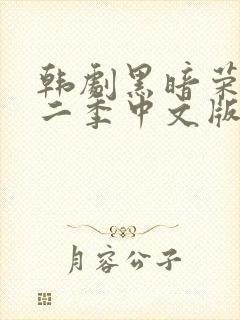 韩剧黑暗荣
二季中文版
月容公子